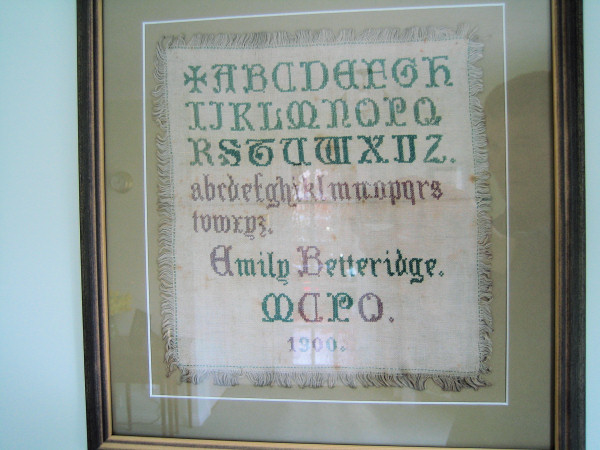 ✠ABCDEFGH
IJKLMNOPQ
RSTUWXVZ.
abcdefghijklmnopqrs
tvwxyz.
Emily Betteridge.
MCPO.
1900.